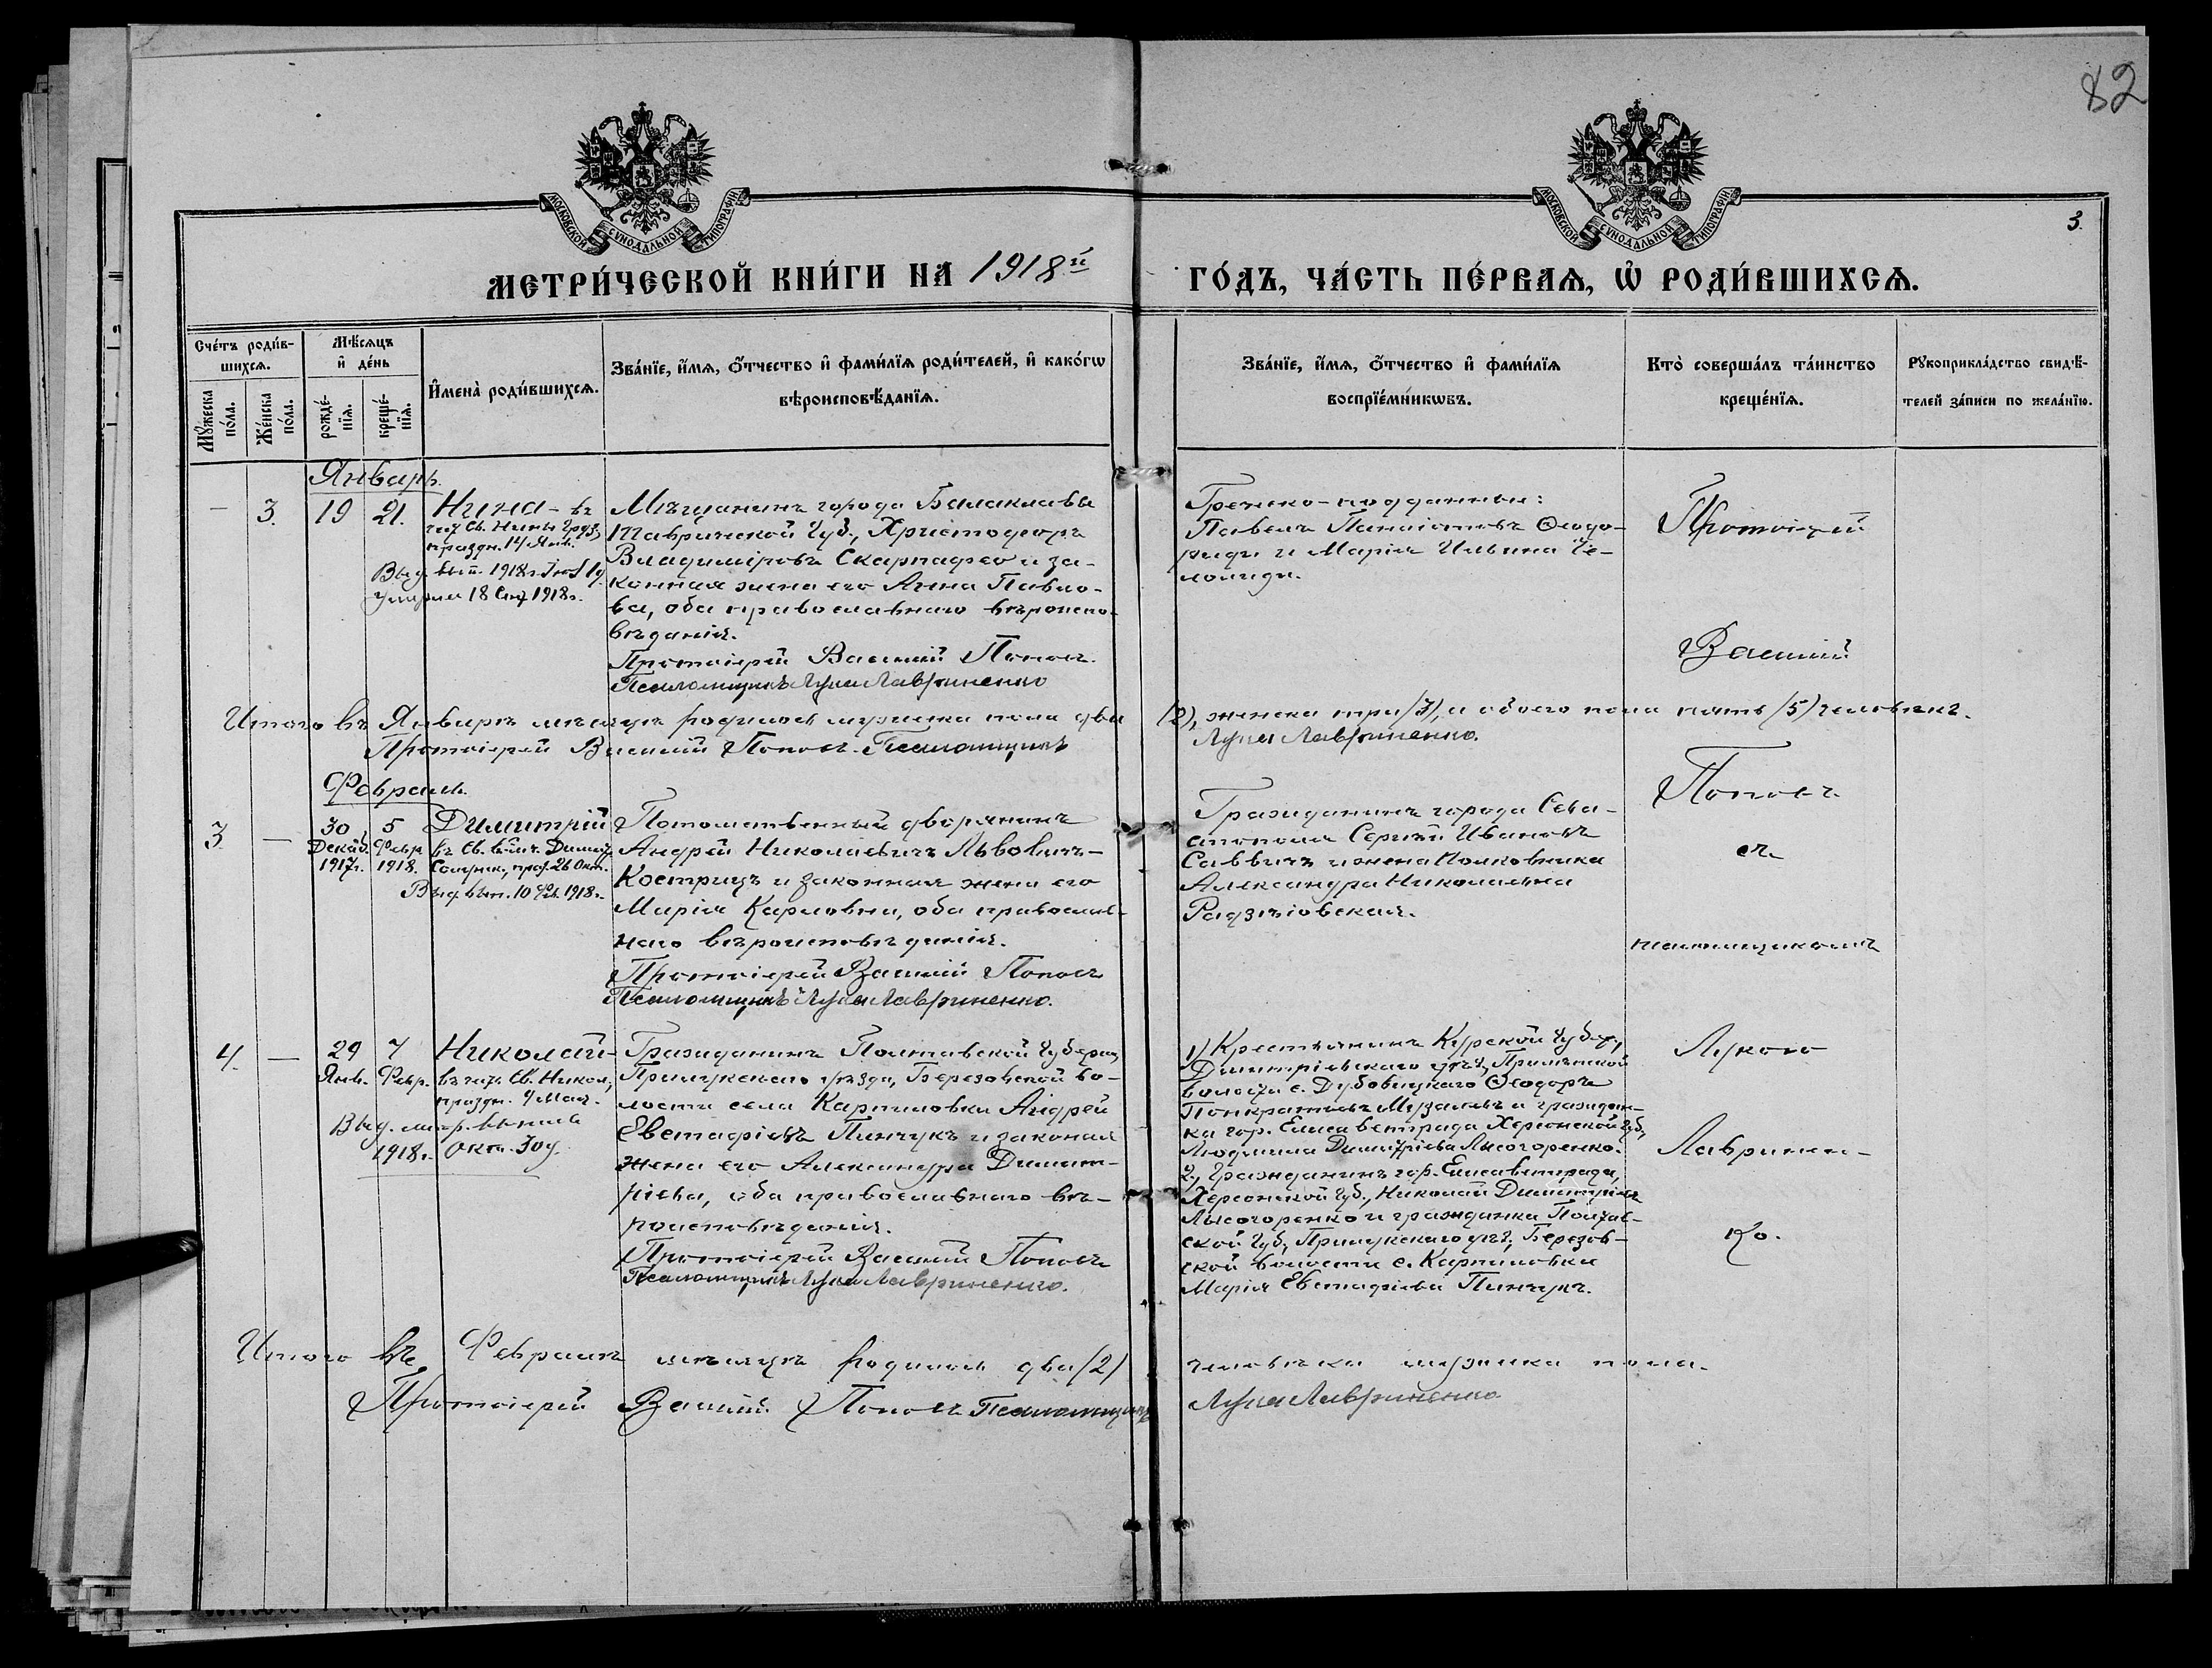 82
МОСКОВСКОЙ СУНОДАЛЬНОЙ ТИПОГРАФІИ
МОСКОВСКОЙ СУНОДАЛЬНОЙ ТИПОГРАФІИ
3.
МЕТРИ́ЧЕСКОЙ КНИ́ГИ НА 1918й ГО́ДЪ, ЧА́СТЬ ПЕ́РВАѦ, Ѽ РОДИ́ВШИХСѦ.
Сче́тъ роди́в-
шихсѧ.
Мꙋ́жеска по́ла.
Же́нска по́ла.
Мѣ́сѧцъ
и҆ де́нь
рожде́-
нїѧ.
креще́-
нїѧ.
И҆мена̀ роди́вшихсѧ.
Зва́нїе, и҆́мѧ, ѻ҆́тчество и҆ фами́лїѧ роди́телей, и҆ како́гѡ
вѣроисповѣ́данїѧ.
Зва́нїе, и҆́мѧ, ѻ҆́тчество и҆ фами́лїѧ
воспрїе́мникѡвъ.
Кто̀ соверша́лъ та́инство
креще́нїѧ.
Рꙋкоприкла́дство свидѣ́-
телей за́писи по жела́нїю.
Январь.
—
3.
19
21.
Нина - въ
честь Св. Нины Груз.,
праздн. 14 Янв.
1918 г.
18 1918 г.
Мѣщанинъ города Балаклавы
Таврической Губ., Христофоръ
Владиміровъ Скарпафео и за-
конная жена его Анна Павло-
ва, оба православнаго вѣроиспо-
вѣданія.
Протоіерей Василій Поповъ.
Псаломщикъ Лука Лавриненко
Греческо-подданные:
Павелъ Ѳеодо-
риди и Марія Ильина
Протоіерей
Василій
Итого въ Январѣ мѣсяцѣ родилось мужска пола два (2), женска три (3), а обоего пола пять (5) человѣкъ.
Протоіерей Василій Поповъ. Псаломщикъ Лука Лавриненко.
Февраль.
3.
—
30
Декаб.
1917 г.
5
Февр.
1918.
Димитрій
въ Св. Димит.
Солунск., праз. 26 Окт.
10 1918 г.
Потомственный дворянинъ
Андрей Николаевичъ Львовичъ-
Кострицъ и законная жена его
Марія Карловна, оба православ-
наго вѣроисповѣданія.
Протоіерей Василій Поповъ
Псаломщикъ Лука Лавриненко.
Гражданинъ города Сева-
стополя Сергѣй Ивановъ
Саввичъ и жена Полковника
Александра Николаевна
Поповъ
съ
псаломщикомъ
4.
—
29
Янв.
7
Февр.
Николай -
въ честь Св. Никол.,
праздн. 9 Мая.
1918 г. Окт.
Гражданинъ Полтавской Губерніи,
Прилукскаго уѣзда, Березовской во-
лости села Карпиловки Андрей
Евстафіевъ Пинчукъ и законная
жена его Александра Димит-
ріева, оба православнаго вѣ-
роисповѣданія.
Протоіерей Василій Поповъ
Псаломщикъ Лука Лавриненко.
1) Крестьянинъ Курской Губер.,
Димитріевскаго уѣз.,
волости с. Дубовицкаго Ѳеодоръ
Панкратіевъ и граждан-
ка гор. Елисаветграда Херсонской Губ.,
Людмила Димитріева Лысогоренко.
2) Гражданинъ гор. Елисаветграда,
Херсонской Губ., Николай Димитріевъ
Лысогоренко и гражданка Полтав-
ской Губ., Прилукскаго уѣз., Березов-
ской волости с. Карпиловки
Марія Евстафіева Пинчукъ.
Лукою
Лавринен-
ко.
Итого въ Февралѣ мѣсяцѣ родилось два (2) человѣка мужска пола.
Протоіерей Василій Поповъ Псаломщикъ Лука Лавриненко